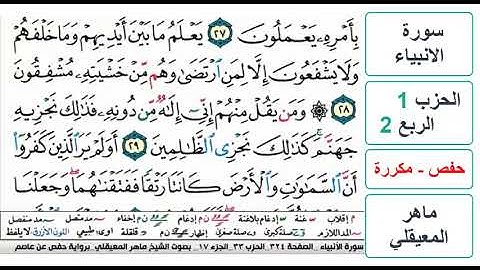 سورة
الانبياء
الحزب 1
الربع 2
حفص - مكررة
ماهر
المعيقلي
بِأَمْرِهِۦ يَعْمَلُونَ ٢٧ يَعْلَمُ مَا بَيْنَ أَيْدِيهِمْ وَمَا خَلْفَهُمْ
وَلَا يَشْفَعُونَ إِلَّا لِمَنِ ٱرْتَضَىٰ وَهُم مِّنْ خَشْيَتِهِۦ مُشْفِقُونَ
٢٨ ۞ وَمَن يَقُلْ مِنْهُمْ إِنِّىٓ إِلَٰهٌ مِّن دُونِهِۦ فَذَٰلِكَ نَجْزِيهِ
جَهَنَّمَ كَذَٰلِكَ نَجْزِى ٱلظَّٰلِمِينَ ٢٩ أَوَلَمْ يَرَ ٱلَّذِينَ كَفَرُوٓا۟
أَنَّ ٱلسَّمَٰوَٰتِ وَٱلْأَرْضَ كَانَتَا رَتْقًا فَفَتَقْنَٰهُمَا وَجَعَلْنَا
م إقلاب غنة إدغام بلاغنة إدغام إخفاء مد متصل مد منفصل
المد اللازم صلة كبرى صلة صغرى إظهار قلقلة اوى طبيعي اللون الأزرق لايلفظ
سورة الأنبياء - الصفحة ٣٢٤ - الحزب ٣٣ - الجزء ١٧ - بصوت الشيخ ماهر المعيقلي - برواية حفص عن عاصم